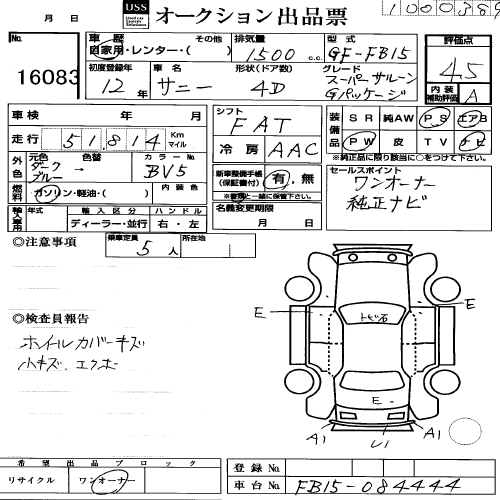 月 日
USS オークション出品票
1000389
No.
16083
車歴 その他
自家用・レンター・( )
排気量
1500 c.c.
型式
GF-FB15
評価点
4.5
初度登録年
12年
車名
サニー
形状(ドア数)
4D
グレード
スーパーサルーン
Gパッケージ
内装
補助評価 A
車検 年 月
シフト
FAT
装備品
SR 純AW PS エアB
PW 皮 TV ナビ
※純正品に限り該当に○をつけて下さい。
走行 51,814 Km マイル
冷房 AAC
外色 元色 色替 カラーNo.
ダーク
ブルー →
BV5
新車整備手帳
(保証書付) 有・無
※書類と一緒に保管下さい。
セールスポイント
ワンオーナー
純正ナビ
燃料 ガソリン・軽油・( ) 内装色
名義変更期限
月 日
輸入車用 年式 輸入区分 ハンドル
ディーラー・並行 右・左
◎注意事項
乗車定員
5人
所在地
E
E
トビ石
◎検査員報告
ホイルカバーキズ
小キズ.エクボ
E
A1 U1 A1
希望出品ブロック
リサイクル ワンオーナー
登録No.
車台No. FB15-084444